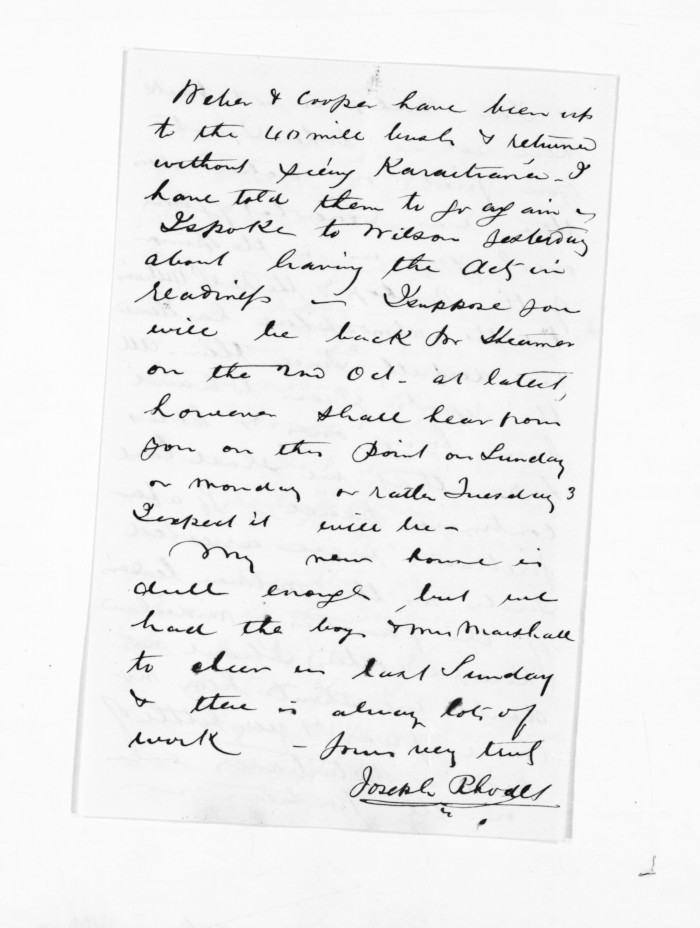 Weber & Cooper have been up
to the 40 mile bush & returned
without seeing Karaitiana - I
have told them to go again
I spoke to Wilson yesterday
about having the Act in
readiness - I suppose you
will be back for Steamer
on the 2nd Oct - at latest,
however shall hear from
you on this point on Sunday
or Monday or rather Tuesday
I expect it will be -
My new house is
dull enough but we
had the boys & Mrs Marshall
to cheer us last Sunday
& there is always lots of
work - Yours very truly
Joseph Rhodes